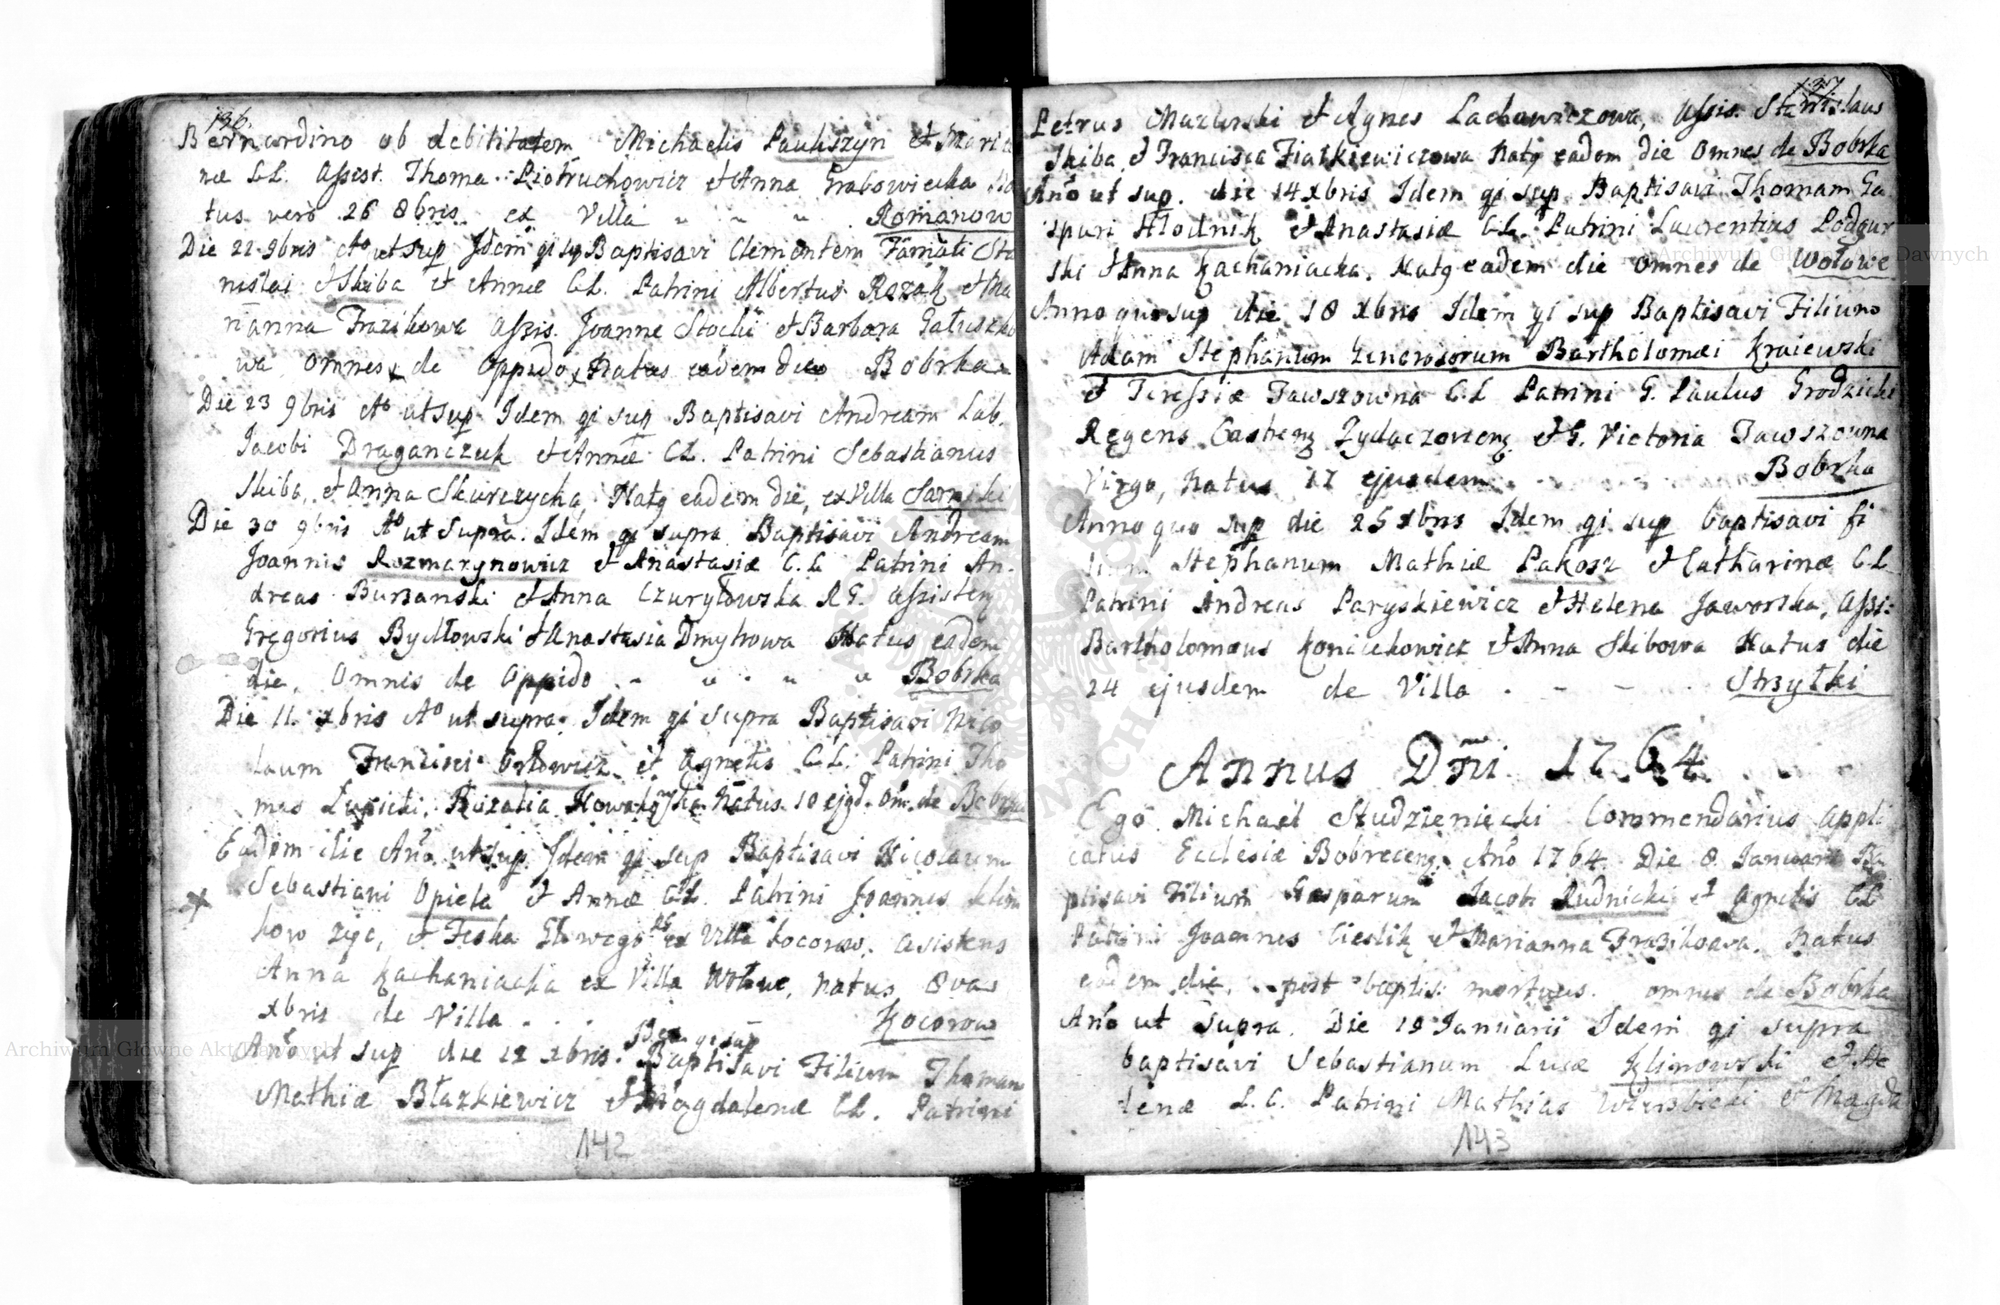 136.
Bernardino ob debilitatem Michaelis Pauliszyn et Maria
næ C.L. Assist. Thoma Piotruchowicz et Anna Grabowiecka Na
tus vero 26 8bris ex Villa Romanow
Die 22 9bris Ao ut sup Idem qi sup Baptisavi Clementem Famati Sta
nislai Skiba et Annæ C.L. Patrini Albertus Rozak et Ma
rianna Frazikowa Assis. Joanne Stocki et Barbara Galuszko
wa omnes de Oppido, Natus eadem die Bobrka
Die 23 9bris Ao ut sup Idem qi sup Baptisavi Andream Lab.
Jacobi Draganczuk et Annæ C.L. Patrini Sebastianus
Skiba, et Anna Skurczycka, Natq eadem die, ex Villa Sarniki
Die 30 9bris Ao ut Supra. Idem qi supra Baptisavi Andream
Joannis Rozmarynowicz et Anastasiæ C.L. Patrini An-
dreas Burzanski et Anna Czuryłowska R.G. Assisteq
Gregorius Bydłowski et Anastasia Dmytrowa Natus eadem
die, Omnes de Oppido Bobrka
Die 11. xbris Ao ut supra. Idem qi supra Baptisavi Nico
laum Francisci Orłowicz et Agnetis C.L. Patrini Tho
mas Lupicki, Rozalia Nowakowska Natus 10 ejqd. Om. de Bobrka
Eadem die Ano ut sup. Idem qi sup Baptisavi Nicolaum
Sebastiani Opiela et Annæ C.L. Patrini Joannes Klim
kow zyc, et Feska ex Villa Kocorow. Asistens
Anna Kachaniacka ex Villa Wołwe, natus 8va
xbris de Villa Kocorow
Ano ut sup die 12 xbris. Idem qi sup Baptisavi Filium Thomam
Mathiæ Błazkiewicz et Magdalenæ C.L. Patrini
142
137
Petrus Mazurski et Agnes Lachowiczowa, Assis. Stanislaus
Skiba et Francisca Fiałkiewiczowa Natq eadem die Omnes de Bobrka
Ano ut sup. die 14 xbris Idem qi sup Baptisavi Thomam Ga
spari Hłodnik et Anastasiæ C.L. Patrini Laurentius Podgur
ski et Anna Kachaniacka. Natq eadem die omnes de Wołowe
Anno quo sup die 18 xbris Idem qi sup Baptisavi Filium
Adam Stephanum Generosorum Bartholomæi Kraiewski
et Teressiæ Jawszowna C.L. Patrini G. Paulus Grodzicki
Regens Castrenq Zydaczovienq et G. Victoria Jawszowna
Virgo, Natus 17 ejusdem Bobrka
Anno quo sup die 25 xbris Idem qi sup baptisavi fi
lium Stephanum Mathiæ Pakosz et Catharinæ C.L.
Patrini Andreas Paryskiewicz et Helena Jaworska, Assi:
Bartholomæus Konickowicz et Anna Skibowa Natus die
24 ejusdem de Villa Strzyłki
Annus Dñi 1764
Ego Michael Studzieniecki Commendarius appli
catus Ecclesiæ Bobrecenq. Ano 1764 Die 8. Januarii Ba
ptisavi Filium Gasparum Jacobi Rudnicki et Agnetis C.L.
Patrini Joannes Cieslik et Marianna Frazikowa. Natus
eadem die, post baptis: mortuus. omnes de Bobrka
Ano ut Supra. Die 19 Januarii Idem qi supra
baptisavi Sebastianum Lucæ Klimowski et He
lenæ L.C. Patrini Mathias Wierzbicki et Magda
143
Archiwum Główne Akt Dawnych
Archiwum Główne Akt Dawnych